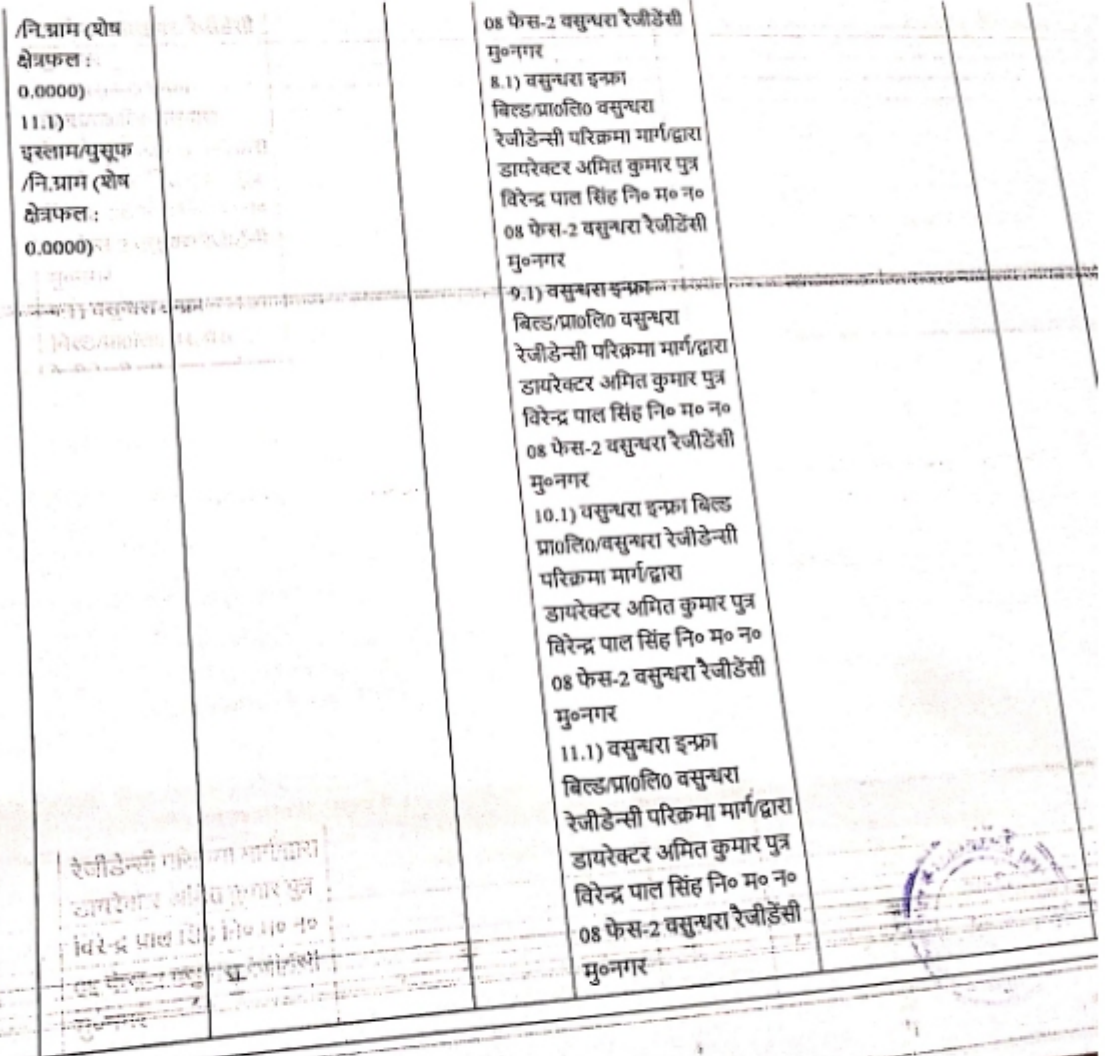 /नि.ग्राम (शेष
क्षेत्रफल :
0.0000)
11.1)
इस्लाम/युसूफ
/नि.ग्राम (शेष
क्षेत्रफल :
0.0000)
08 फेस-2 वसुन्धरा रैजीडेंसी
मु०नगर
8.1) वसुन्धरा इन्फ्रा
बिल्ड/प्रा0लि0 वसुन्धरा
रेजीडेन्सी परिक्रमा मार्ग/द्वारा
डायरेक्टर अमित कुमार पुत्र
विरेन्द्र पाल सिंह नि० म० न०
08 फेस-2 वसुन्धरा रैजीडेंसी
मु०नगर
9.1) वसुन्धरा इन्फ्रा
बिल्ड/प्रा0लि0 वसुन्धरा
रेजीडेन्सी परिक्रमा मार्ग/द्वारा
डायरेक्टर अमित कुमार पुत्र
विरेन्द्र पाल सिंह नि० म० न०
08 फेस-2 वसुन्धरा रैजीडेंसी
मु०नगर
10.1) वसुन्धरा इन्फ्रा बिल्ड
प्रा0लि0/वसुन्धरा रेजीडेन्सी
परिक्रमा मार्ग/द्वारा
डायरेक्टर अमित कुमार पुत्र
विरेन्द्र पाल सिंह नि० म० न०
08 फेस-2 वसुन्धरा रैजीडेंसी
मु०नगर
11.1) वसुन्धरा इन्फ्रा
बिल्ड/प्रा0लि0 वसुन्धरा
रेजीडेन्सी परिक्रमा मार्ग/द्वारा
डायरेक्टर अमित कुमार पुत्र
विरेन्द्र पाल सिंह नि० म० न०
08 फेस-2 वसुन्धरा रैजीडेंसी
मु०नगर